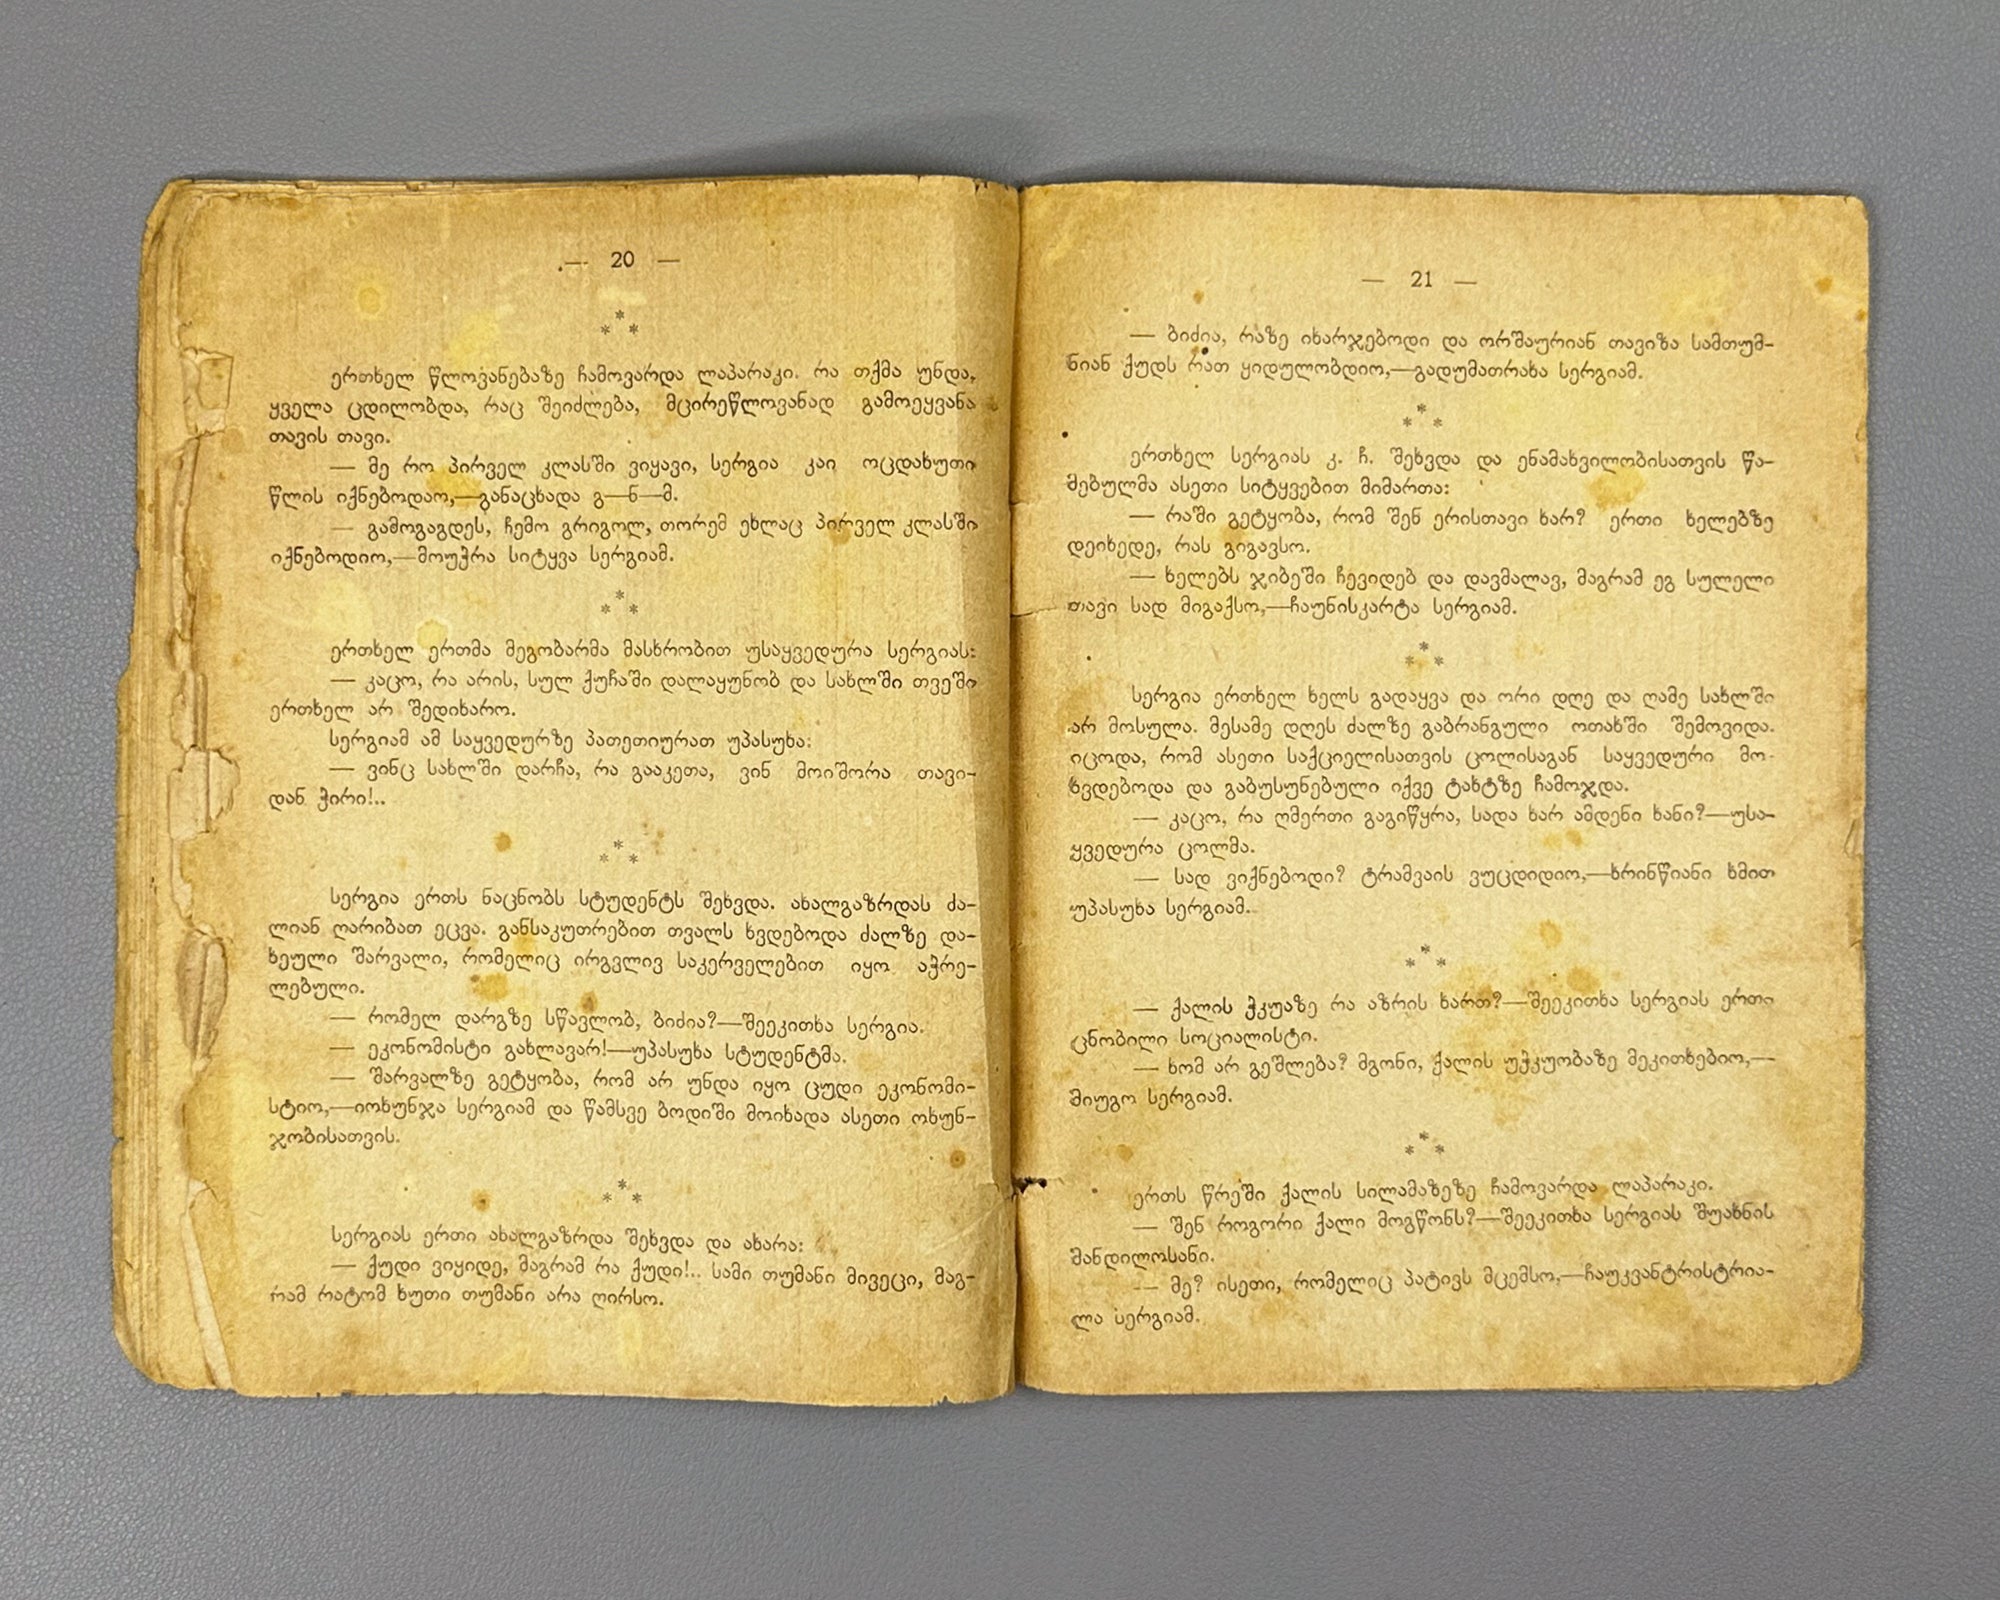 — 20 —
* * *
ერთხელ წლოვანებაზე ჩამოვარდა ლაპარაკი. რა თქმა უნდა,
ყველა ცდილობდა, რაც შეიძლება, მცირეწლოვანად გამოეყვანა
თავის თავი.
— მე რო პირველ კლასში ვიყავი, სერგია კაი ოცდახუთი
წლის იქნებოდაო,—განაცხადა გ—ნ—მ.
— გამოგაგდეს, ჩემო გრიგოლ, თორემ ეხლაც პირველ კლასში
იქნებოდიო,—მოუჭრა სიტყვა სერგიამ.
* * *
ერთხელ ერთმა მეგობარმა მასხრობით უსაყვედურა სერგიას:
— კაცო, რა არის, სულ ქუჩაში დალაყუნობ და სახლში თვეში
ერთხელ არ შედიხარო.
სერგიამ ამ საყვედურზე პათეთიურათ უპასუხა:
— ვინც სახლში დარჩა, რა გააკეთა, ვინ მოიშორა თავი-
დან ჭირი!..
* * *
სერგია ერთს ნაცნობს სტუდენტს შეხვდა. ახალგაზრდას ძა-
ლიან ღარიბათ ეცვა. განსაკუთრებით თვალს ხვდებოდა ძალზე და-
ხეული შარვალი, რომელიც ირგვლივ საკერველებით იყო აჭრე-
ლებული.
— რომელ დარგზე სწავლობ, ბიძია?—შეეკითხა სერგია.
— ეკონომისტი გახლავარ!—უპასუხა სტუდენტმა.
— შარვალზე გეტყობა, რომ არ უნდა იყო ცუდი ეკონომი-
სტიო,—იოხუნჯა სერგიამ და წამსვე ბოდიში მოიხადა ასეთი ოხუნ-
ჯობისათვის.
* * *
სერგიას ერთი ახალგაზრდა შეხვდა და ახარა:
— ქუდი ვიყიდე, მაგრამ რა ქუდი!.. სამი თუმანი მივეცი, მაგ-
რამ რატომ ხუთი თუმანი არა ღირსო.
— 21 —
— ბიძია, რაზე იხარჯებოდი და ორშაურიან თავიზა სამთუმ-
ნიან ქუდს რათ ყიდულობდიო,—გადუმათრახა სერგიამ.
* * *
ერთხელ სერგიას კ. ჩ. შეხვდა და ენამახვილობისათვის წა-
მებულმა ასეთი სიტყვებით მიმართა:
— რაში გეტყობა, რომ შენ ერისთავი ხარ? ერთი ხელებზე
დეიხედე, რას გიგავსო.
— ხელებს ჯიბეში ჩევიდებ და დავმალავ, მაგრამ ეგ სულელი
თავი სად მიგაქსო,—ჩაუნისკარტა სერგიამ.
* * *
სერგია ერთხელ ხელს გადაყვა და ორი დღე და ღამე სახლში
არ მოსულა. მესამე დღეს ძალზე გაბრანგული ოთახში შემოვიდა.
იცოდა, რომ ასეთი საქციელისათვის ცოლისაგან საყვედური მო-
ხვდებოდა და გაბუსუნებული იქვე ტახტზე ჩამოჯდა.
— კაცო, რა ღმერთი გაგიწყრა, სადა ხარ ამდენი ხანი?—უსა-
ყვედურა ცოლმა.
— სად ვიქნებოდი? ტრამვაის ვუცდიდიო,—ხრინწიანი ხმით
უპასუხა სერგიამ.
* * *
— ქალის ჭკუაზე რა აზრის ხართ?—შეეკითხა სერგიას ერთი
ცნობილი სოციალისტი.
— ხომ არ გეშლება? მგონი, ქალის უჭკუობაზე მეკითხებიო,—
მიუგო სერგიამ.
* * *
ერთს წრეში ქალის სილამაზეზე ჩამოვარდა ლაპარაკი.
— შენ როგორი ქალი მოგწონს?—შეეკითხა სერგიას შუახნის
მანდილოსანი.
— მე? ისეთი, რომელიც პატივს მცემსო,—ჩაუკვანტრისტრია-
ლა სერგიამ.